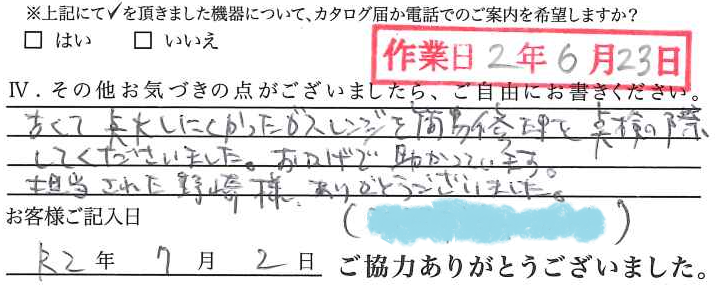 ※上記にて✓を頂きました機器について、カタログ届か電話でのご案内を希望しますか?
□ はい □ いいえ
作業日 2年6月23日
Ⅳ．その他お気づきの点がございましたら、ご自由にお書きください。
古くて点火しにくかったガスレンジを簡易修理を点検の際
してくださいました。おかげで助かっています。
担当された野崎様、ありがとうございました。
お客様ご記入日
( )
R2年 7月 2日 ご協力ありがとうございました。